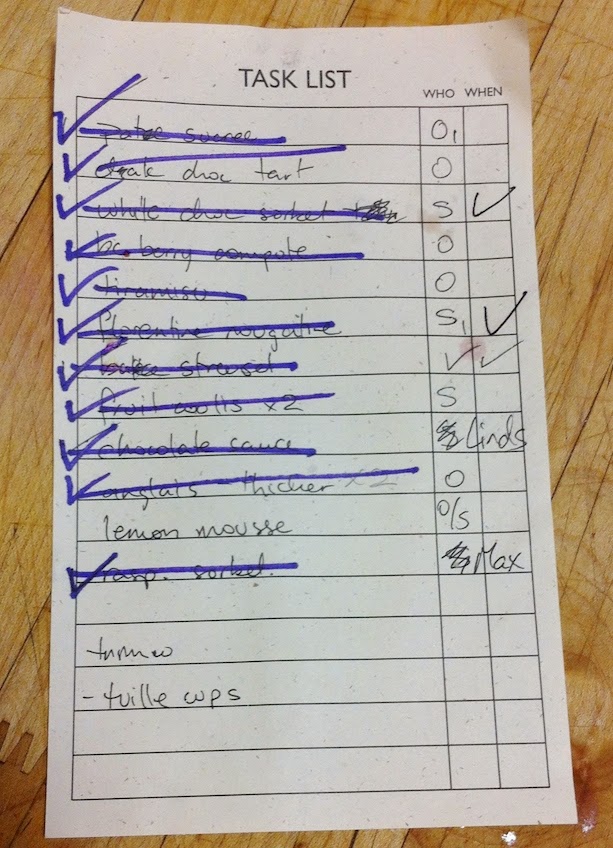 TASK LIST
WHO WHEN
sucree O,
choc tart O
white choc sorbet S ✓
berry compote O
tiramisu O
florentine nougatine S, ✓
streusel ✓ ✓
fruit x2 S
chocolate sauce Linds
anglais - thicker x2 O
lemon mousse O/S
rasp. sorbet. Max
- tuille cups